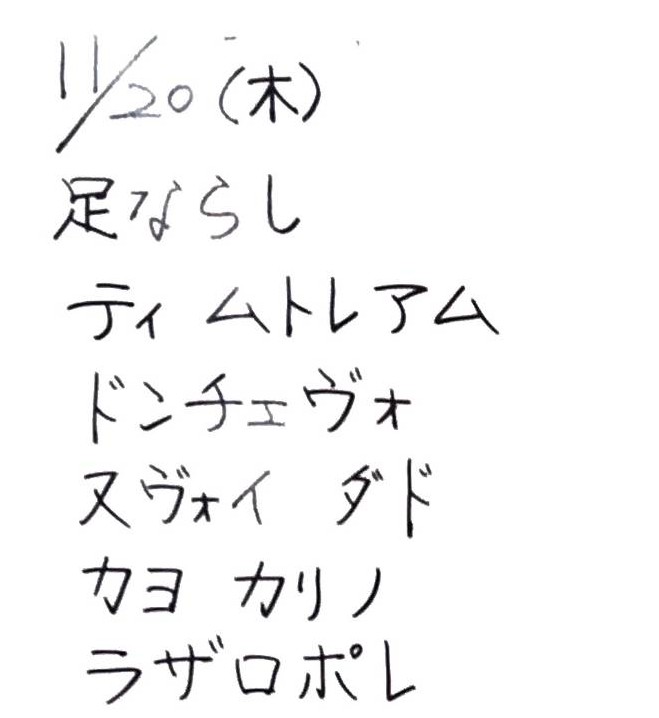 11/20(木)
足ならし
ティムトレアム
ドンチェヴォ
ヌヴォイ ダド
カヨ カリノ
ラザロポレ